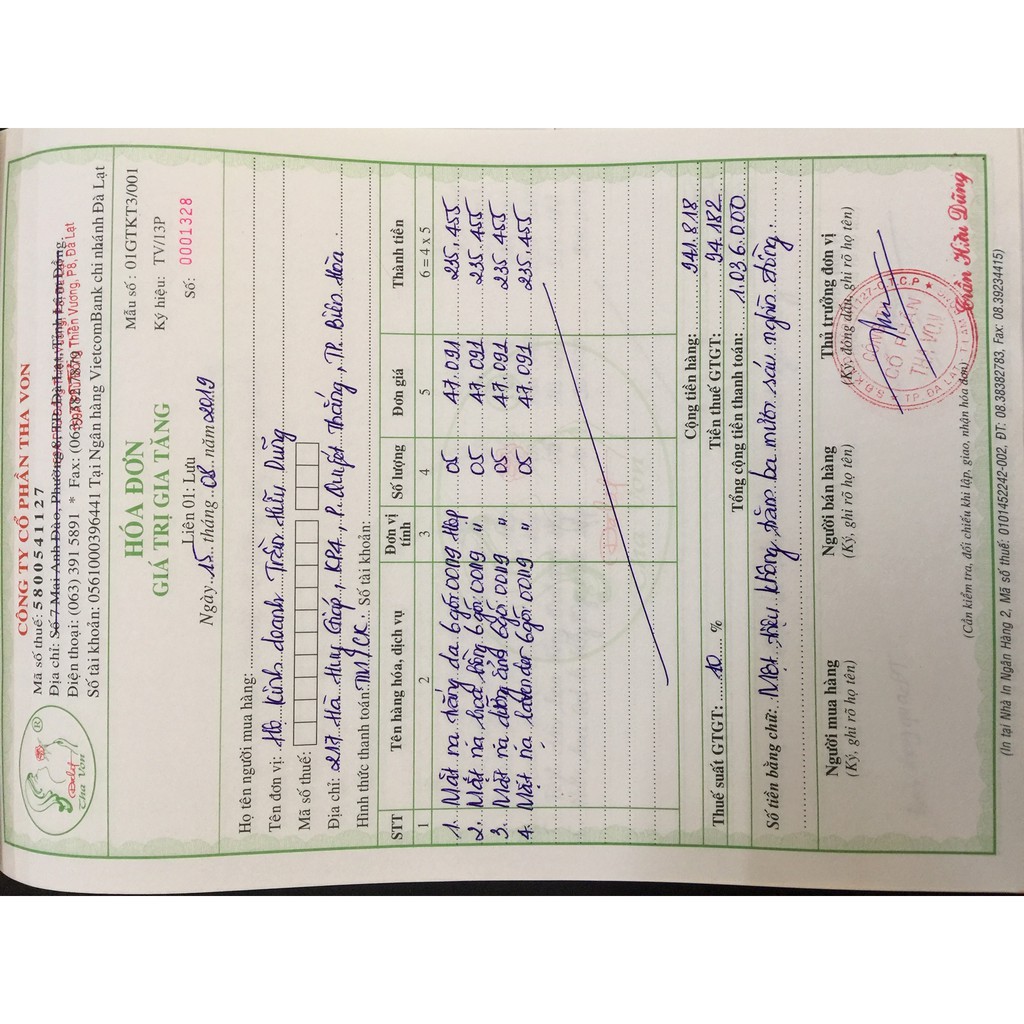 Dalat
Tha Von
®
CÔNG TY CỔ PHẦN THA VON
Mã số thuế: 5800541127
Địa chỉ: Số 7 Mai Anh Đào, Phường 8, TP. Đà Lạt, Tỉnh Lâm Đồng
Thiên Vương, P8, Đà Lạt
Điện thoại: (063) 391 5891 * Fax: (063) 382 7879
Số tài khoản: 0561000396441 Tại Ngân hàng VietcomBank chi nhánh Đà Lạt
HÓA ĐƠN
GIÁ TRỊ GIA TĂNG
Liên 01: Lưu
Ngày 15 tháng 08 năm 2019
Mẫu số: 01GTKT3/001
Ký hiệu: TV/13P
Số: 0001328
Họ tên người mua hàng:
Tên đơn vị: Hộ kinh doanh Trần Hữu Dũng
Mã số thuế:
Địa chỉ: 217 Hà Huy Giáp, KP4, P. Quyết Thắng, TP. Biên Hòa
Hình thức thanh toán: TM/CK Số tài khoản:
STT Tên hàng hóa, dịch vụ Đơn vị tính Số lượng Đơn giá Thành tiền
1 2 3 4 5 6 = 4 x 5
1. Mặt nạ trắng da 6 gói 0019 Hộp 05 47.091 235.455
2. Mặt nạ hoa hồng 6 gói 0019 " 05 47.091 235.455
3. Mặt nạ dưỡng ẩm 6 gói 0019 " 05 47.091 235.455
4. Mặt nạ lavender 6 gói 0019 " 05 47.091 235.455
Cộng tiền hàng: 941.818
Thuế suất GTGT: 10 % Tiền thuế GTGT: 94.182
Tổng cộng tiền thanh toán: 1.036.000
Số tiền bằng chữ: Một triệu không trăm ba mươi sáu nghìn đồng
Người mua hàng
(Ký, ghi rõ họ tên)
Người bán hàng
(Ký, ghi rõ họ tên)
Thủ trưởng đơn vị
(Ký, đóng dấu, ghi rõ họ tên)
CỔ PHẦN
THA VON
Trần Hữu Dũng
(Cần kiểm tra, đối chiếu khi lập, giao, nhận hóa đơn)
(In tại Nhà In Ngân Hàng 2, Mã số thuế: 0101452242-002, ĐT: 08.38382783, Fax: 08.39234415)